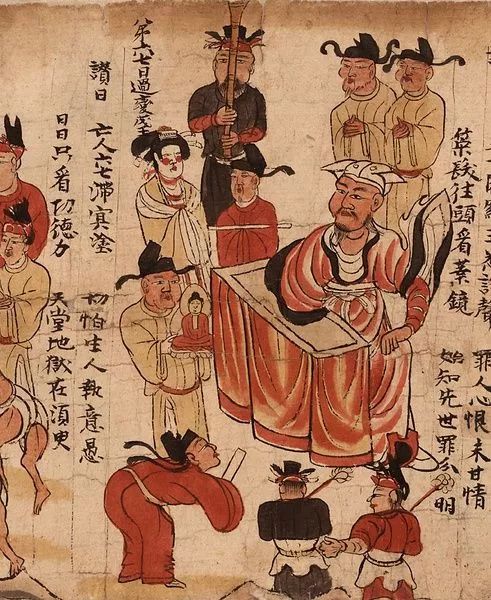 罪人心恨未甘情
策髮往頭看業鏡
始知先世罪分明
第六七日過變成王
讚曰
亡人六七滯冥塗
切怕生人執意愚
日日只看功德力
天堂地獄在湏臾